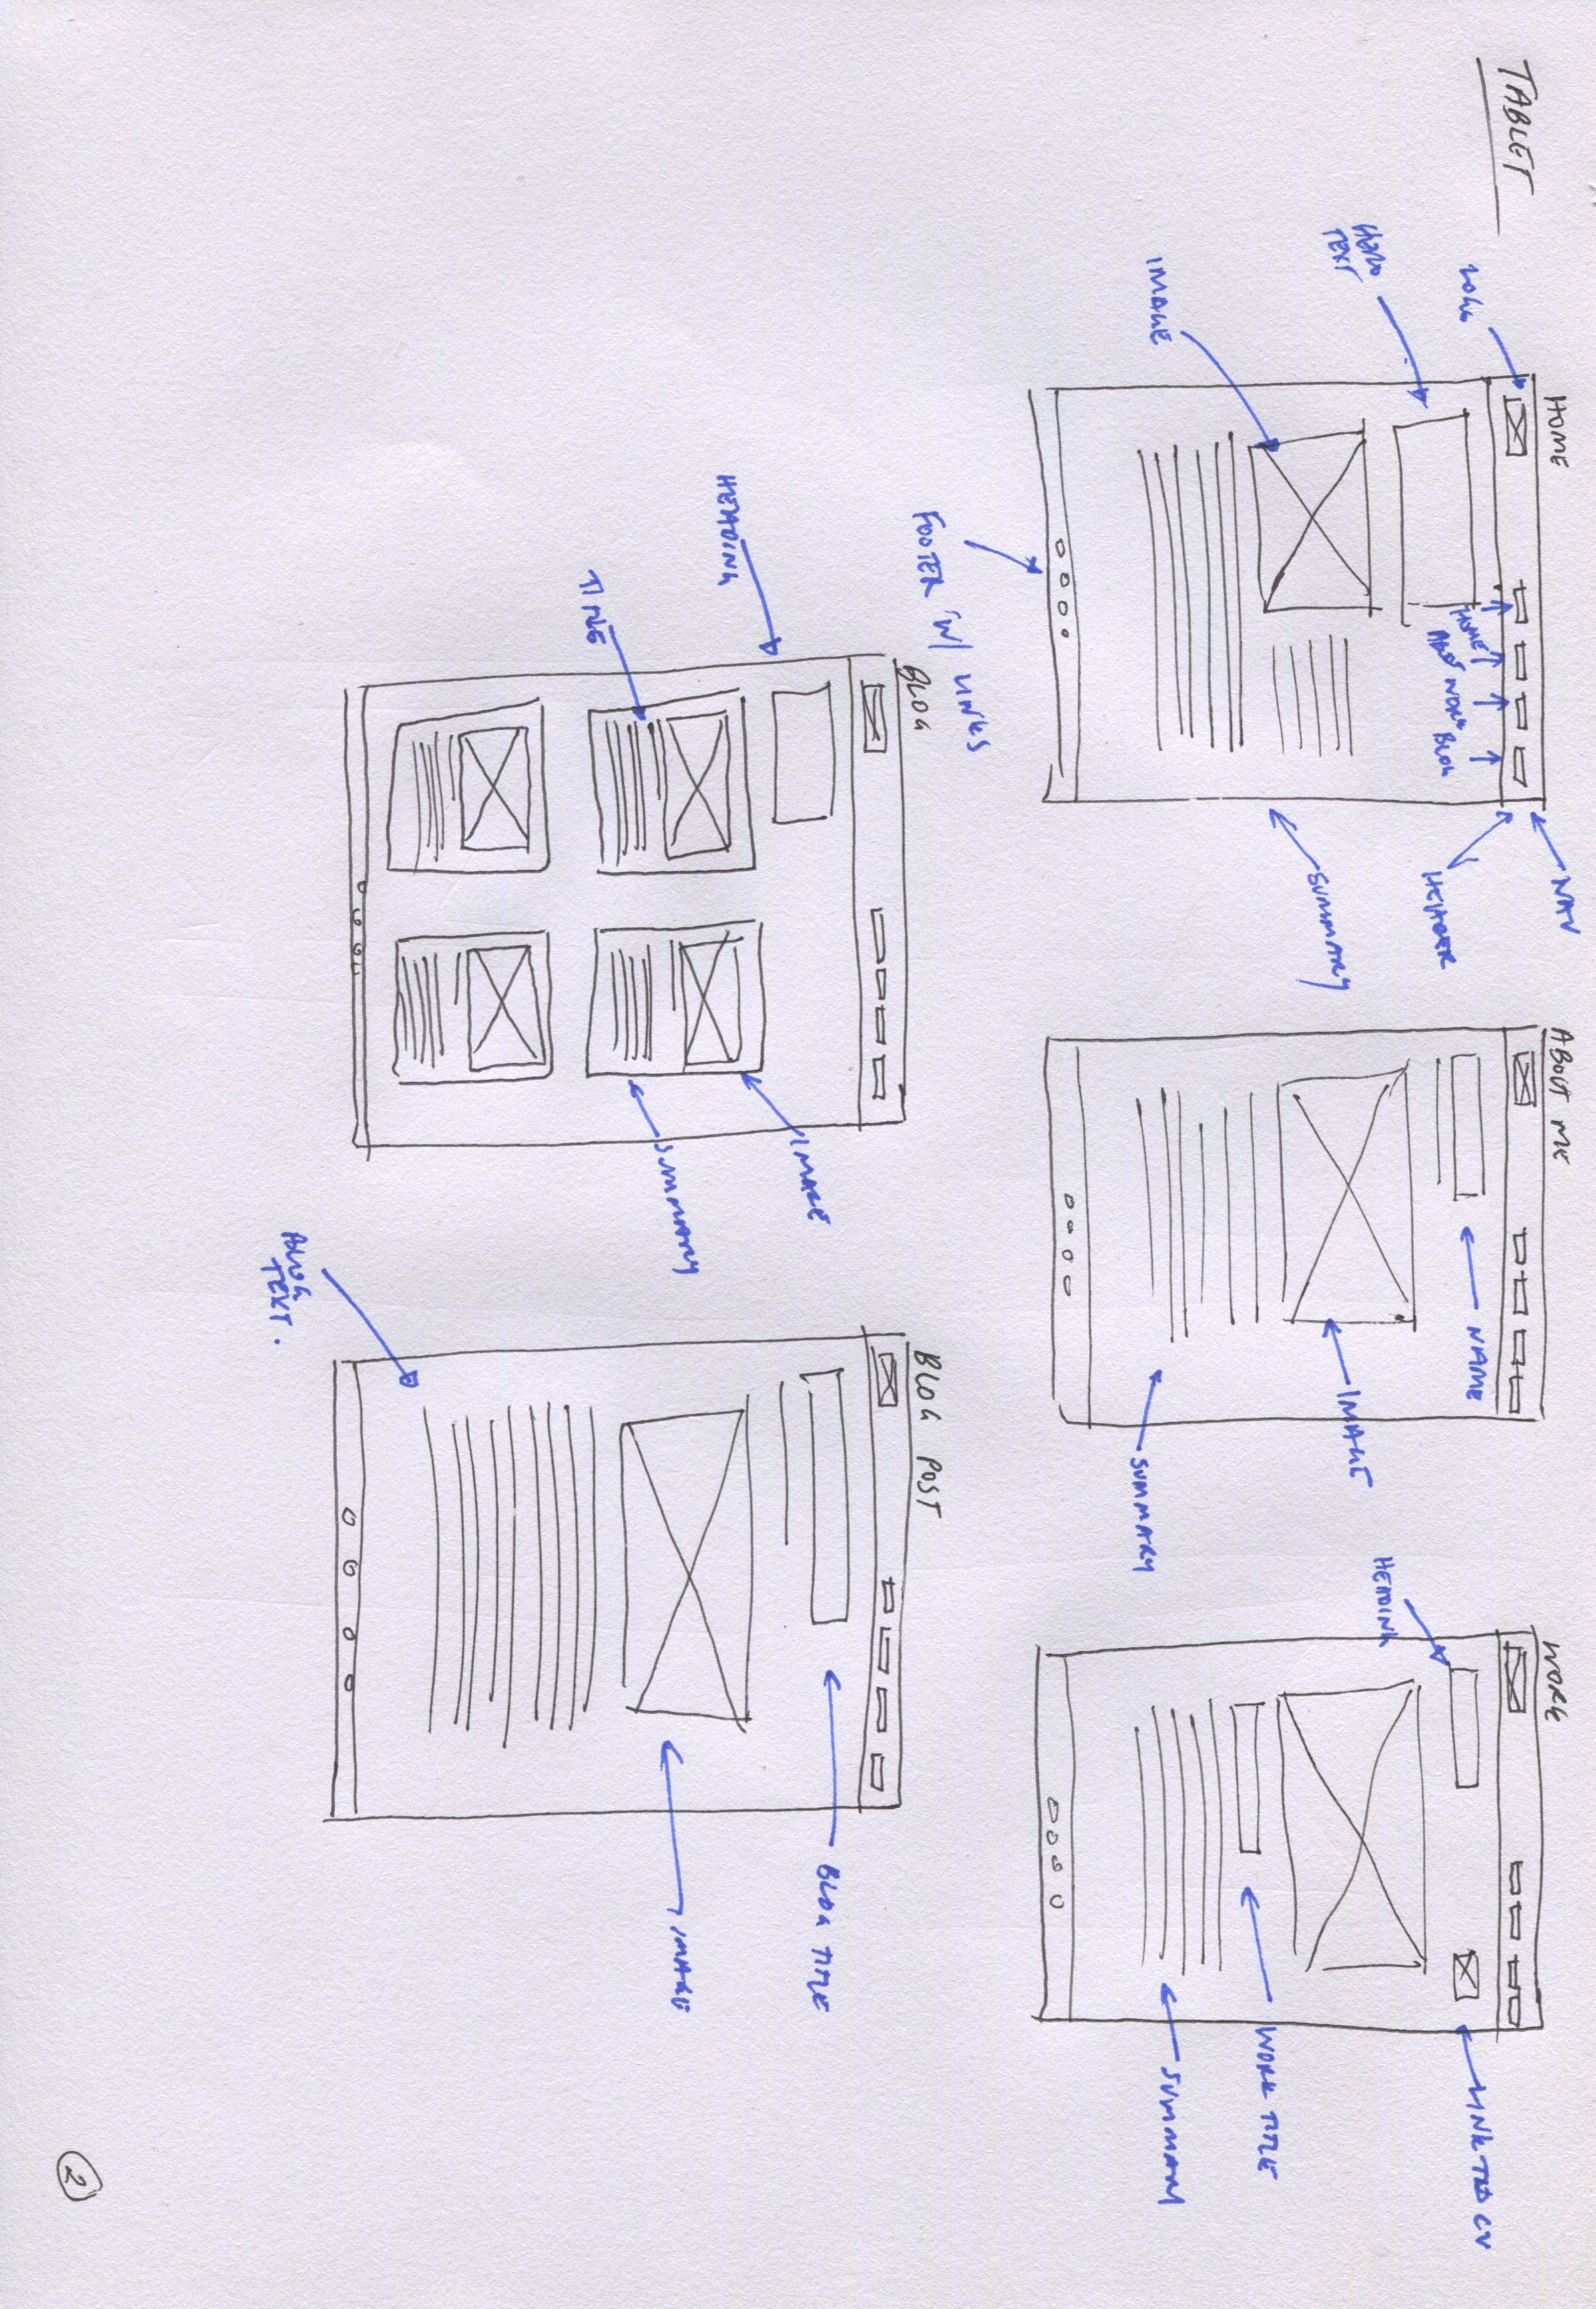 TABLET
HOME
NAV
LOGO
HOME
ABOUT
WORK
BLOG
HEADER
HERO
TEXT
SUMMARY
IMAGE
FOOTER W/ LINKS
ABOUT ME
NAME
IMAGE
SUMMARY
WORK
LINK TO CV
HEADING
WORK TITLE
SUMMARY
BLOG
IMAGE
HEADING
SUMMARY
TITLE
BLOG POST
BLOG TITLE
IMAGE
BLOG
TEXT.
2